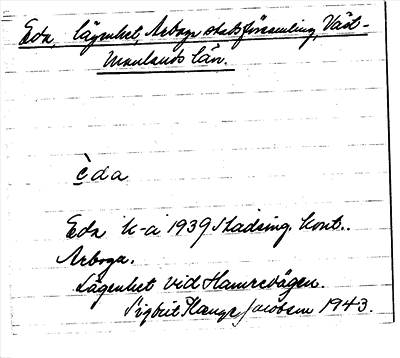 Eda, lägenhet, Arboga stadsförsamling, Väst-
manlands län.
èda
Eda k-a 1939 Stadsing. kont..
Arboga.
Lägenhet vid Hamrevägen.
Sigbrit Plænge Jacobson 1943.